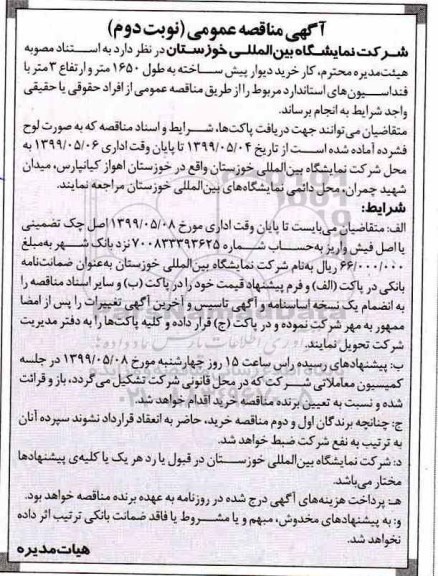 آگهی مناقصه عمومی (نوبت دوم)
شرکت نمایشگاه بین‌المللی خوزستان در نظر دارد به استناد مصوبه
هیئت‌مدیره محترم، کار خرید دیوار پیش ساخته به طول ۱۶۵۰ متر و ارتفاع ۳ متر با
فنداسیون‌های استاندارد مربوط را از طریق مناقصه عمومی از افراد حقوقی یا حقیقی
واجد شرایط به انجام برساند.
متقاضیان می‌توانند جهت دریافت پاکت‌ها، شرایط و اسناد مناقصه که به صورت لوح
فشرده آماده شده است از تاریخ ۱۳۹۹/۰۵/۰۴ تا پایان وقت اداری ۱۳۹۹/۰۵/۰۶ به
محل شرکت نمایشگاه بین‌المللی خوزستان واقع در خوزستان اهواز کیانپارس، میدان
شهید چمران، محل دائمی نمایشگاه‌های بین‌المللی خوزستان مراجعه نمایند.
شرایط:
الف: متقاضیان می‌بایست تا پایان وقت اداری مورخ ۱۳۹۹/۰۵/۰۸ اصل چک تضمینی
یا اصل فیش واریز به حساب شماره ۷۰۰۸۳۳۳۹۳۶۲۵ نزد بانک شهر به مبلغ
۶۶/۰۰۰/۰۰۰ ریال به‌نام شرکت نمایشگاه بین‌المللی خوزستان به‌عنوان ضمانت‌نامه
بانکی در پاکت (الف) و فرم پیشنهاد قیمت خود را در پاکت (ب) و سایر اسناد مناقصه را
به انضمام یک نسخه اساسنامه و آگهی تاسیس و آخرین آگهی تغییرات را پس از امضا
ممهور به مهر شرکت نموده و در پاکت (ج) قرار داده و کلیه پاکت‌ها را به دفتر مدیریت
شرکت تحویل نمایند.
ب: پیشنهادهای رسیده راس ساعت ۱۵ روز چهارشنبه مورخ ۱۳۹۹/۰۵/۰۸ در جلسه
کمیسیون معاملاتی شرکت که در محل قانونی شرکت تشکیل می‌گردد، باز و قرائت
شده و نسبت به تعیین برنده مناقصه خرید اقدام خواهد شد.
ج: چنانچه برندگان اول و دوم مناقصه خرید، حاضر به انعقاد قرارداد نشوند سپرده آنان
به ترتیب به نفع شرکت ضبط خواهد شد.
د: شرکت نمایشگاه بین‌المللی خوزستان در قبول یا رد هر یک یا کلیه‌ی پیشنهادها
مختار می‌باشد.
هـ: پرداخت هزینه‌های آگهی درج شده در روزنامه به عهده برنده مناقصه خواهد بود.
و: به پیشنهادهای مخدوش، مبهم و یا مشروط یا فاقد ضمانت بانکی ترتیب اثر داده
نخواهد شد.
هیات مدیره